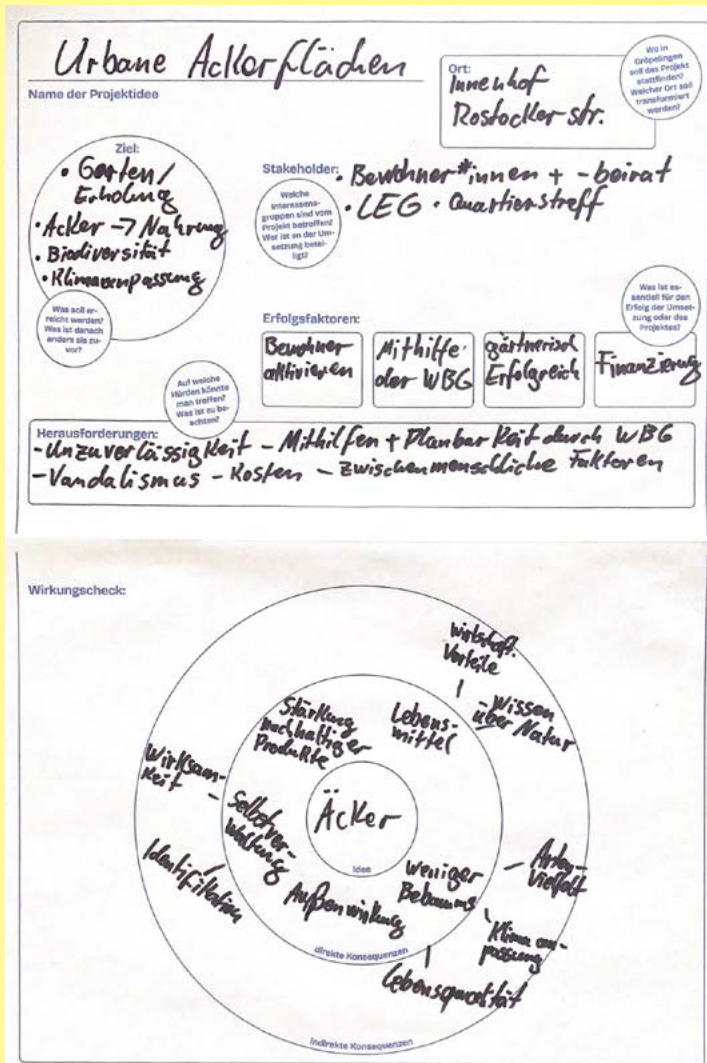 Urbane Ackerflächen
Name der Projektidee
Ort:
Innenhof
Rostocker str.
Wo in
Gröpelingen
soll das Projekt
stattfinden?
Welcher Ort soll
transformiert
werden?
Ziel:
• Garten/
Erholung
• Acker -> Nahrung
• Biodiversität
• Klimaanpassung
Was soll er-
reicht werden?
Was ist danach
anders als zu-
vor?
Stakeholder:
• Bewohner*innen + -beirat
• LEG • Quartierstreff
Welche
Interessens-
gruppen sind vom
Projekt betroffen?
Wer ist an der Um-
setzung betei-
ligt?
Erfolgsfaktoren:
Was ist es-
sentiell für den
Erfolg der Umset-
zung oder des
Projektes?
Bewohner
aktivieren
Mithilfe
der WBG
gärtnerisch
Erfolgreich
Finanzierung
Auf welche
Hürden könnte
man treffen?
Was ist zu be-
achten?
Herausforderungen:
- Unzuverlässigkeit - Mithilfen + Planbarkeit durch WBG
- Vandalismus - Kosten - zwischenmenschliche Faktoren
Wirkungscheck:
wirtschaft.
Vorteile
- Wissen
über Natur
Stärkung
nachhaltiger
Produkte
Lebens-
mittel
Wirksam-
keit
Äcker
Idee
- Selbstver-
waltung
Identifikation
Außenwirkung
weniger
Bebauung
- Arten-
vielfalt
Klimaan-
passung
direkte Konsequenzen
Lebensqualität
indirekte Konsequenzen